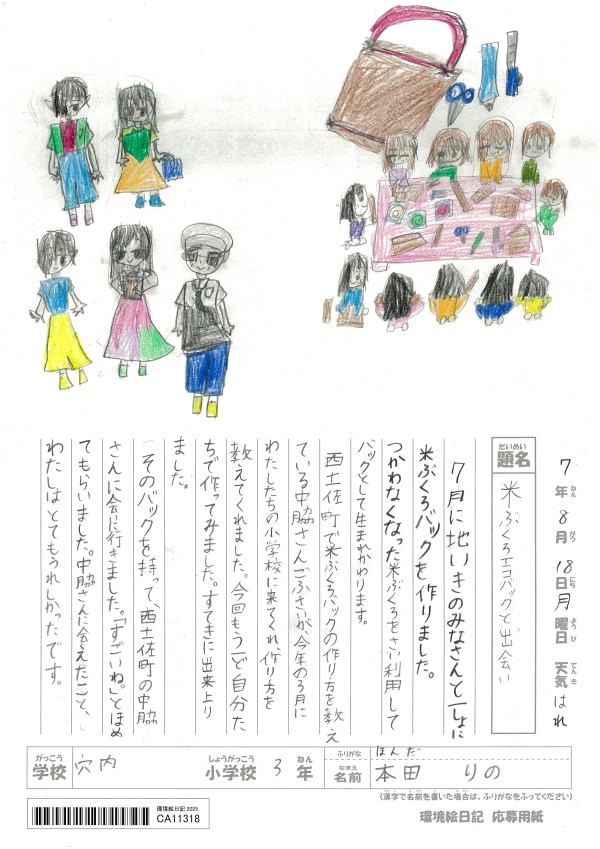 7年8月18日月曜日 天気はれ
ねん がつ にち ようび てんき
だいめい
題名
米ぶくろエコバックと出会い
7月に地いきのみなさんと一しょに
米ぶくろバックを作りました。
つかわなくなった米ぶくろをさい利用して
バックとして生まれかわります。
西土佐町で米ぶくろバックの作り方を教え
ている中脇さんごふさいが、今年の3月に
わたしたちの小学校に来てくれ、作り方を
教えてくれました。今回もう一ど自分た
ちで作ってみました。すてきに出来上り
ました。
そのバックを持って、西土佐町の中脇
さんに会に行きました。「すごいね。」とほめ
てもらいました。中脇さんに会えたこと、
わたしはとてもうれしかったです。
がっこう しょうがっこう ねん
学校 穴内 小学校 3年
ふりがな ほんだ
なまえ
名前 本田 りの
(漢字で名前を書いた場合は、ふりがなをふってください)
環境絵日記 2025
CA11318
環境絵日記 応募用紙